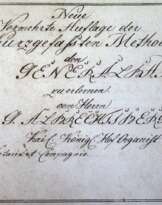 Neue
Vermehrte Auflage der
kurzgefaßten Method
den
GENERALBA
zu erlernen
von Herrn
G. ALBRECHTSBER
Kai: C: König: Hof Organist
Compagnie